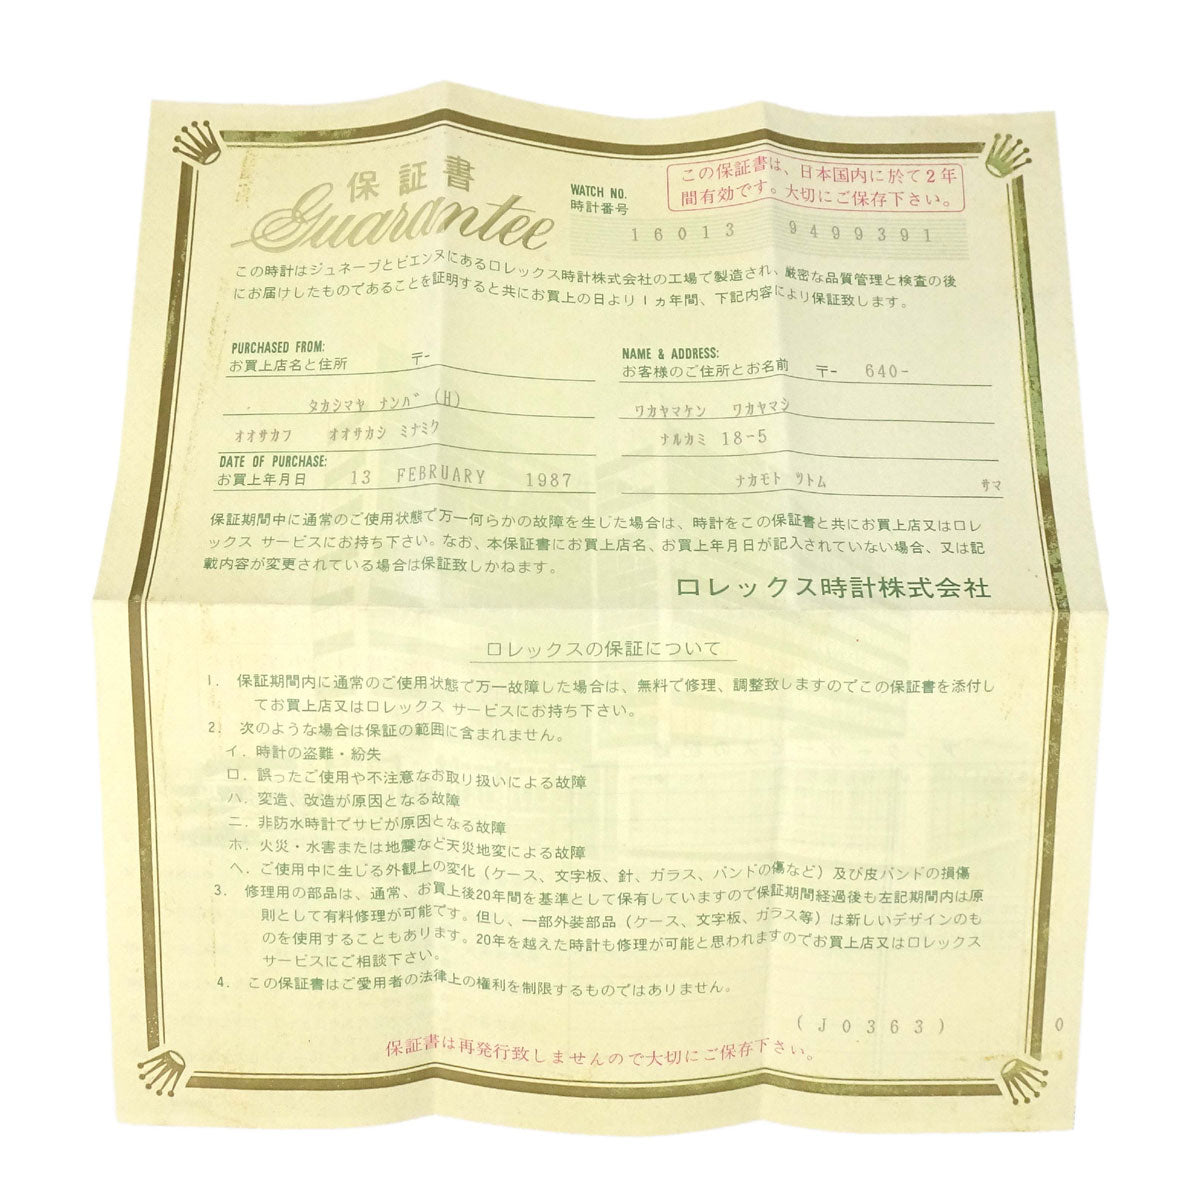 保証書
Guarantee
WATCH NO.
時計番号
この保証書は、日本国内に於て2年
間有効です。大切にご保存下さい。
16013 9499391
この時計はジュネーブとビエンヌにあるロレックス時計株式会社の工場で製造され、厳密な品質管理と検査の後
にお届けしたものであることを証明すると共にお買上の日より1ヵ年間、下記内容により保証致します。
PURCHASED FROM:
お買上店名と住所 〒-
タカシマヤ ナンバ (H)
オオサカフ オオサカシ ミナミク
DATE OF PURCHASE:
お買上年月日 13 FEBRUARY 1987
NAME & ADDRESS:
お客様のご住所とお名前 〒- 640-
ワカヤマケン ワカヤマシ
ナルカミ 18-5
ナカモト ツトム サマ
保証期間中に通常のご使用状態で万一何らかの故障を生じた場合は、時計をこの保証書と共にお買上店又はロレ
ックス サービスにお持ち下さい。なお、本保証書にお買上店名、お買上年月日が記入されていない場合、又は記
載内容が変更されている場合は保証致しかねます。
ロレックス時計株式会社
ロレックスの保証について
1. 保証期間内に通常のご使用状態で万一故障した場合は、無料で修理、調整致しますのでこの保証書を添付し
てお買上店又はロレックス サービスにお持ち下さい。
2. 次のような場合は保証の範囲に含まれません。
イ. 時計の盗難・紛失
ロ. 誤ったご使用や不注意なお取り扱いによる故障
ハ. 変造、改造が原因となる故障
ニ. 非防水時計でサビが原因となる故障
ホ. 火災・水害または地震など天災地変による故障
ヘ. ご使用中に生じる外観上の変化（ケース、文字板、針、ガラス、バンドの傷など）及び皮バンドの損傷
3. 修理用の部品は、通常、お買上後20年間を基準として保有していますので保証期間経過後も左記期間内は原
則として有料修理が可能です。但し、一部外装部品（ケース、文字板、ガラス等）は新しいデザインのも
のを使用することもあります。20年を越えた時計も修理が可能と思われますのでお買上店又はロレックス
サービスにご相談下さい。
4. この保証書はご愛用者の法律上の権利を制限するものではありません。
(J0363) 0
保証書は再発行致しませんので大切にご保存下さい。